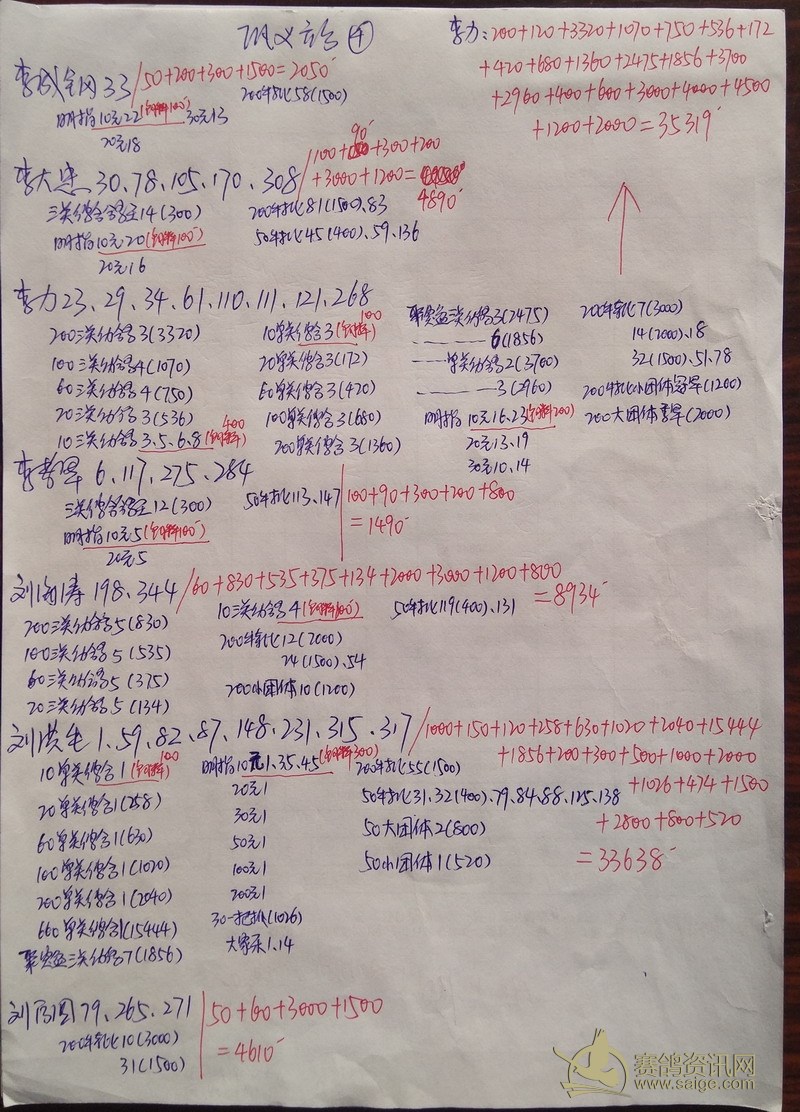 巩义六台④
李力:200+120+3320+1070+750+536+172
+420+680+1360+2475+1856+3700
+2960+400+600+3000+4000+4500
+1200+2000=35319
李成全网33/50+200+300+1500=2050
明指10元22(饲料100) 30元13
20元18
200年批58(1500)
李大忠 30、78、105、170、308
100+90+300+200
+3000+1200=
4890
三关综合鸽王14(300)
明指10元20(饲料100)
20元16
200年批81(1500)、83
50年批45(400)、59、136
李力23、29、34、61、110、111、121、268
200三关幼鸽3(3320)
100三关幼鸽4(1070)
60三关幼鸽4(750)
20三关幼鸽3(536)
10三关幼鸽3、5、6、8(饲料400)
10单关综合3(饲料100)
20单关综合3(172)
60单关综合3(420)
100单关综合3(680)
200单关综合3(1360)
聚宝盆三关幼鸽3(2475)
————6(1856)
——单关幼鸽2(3700)
————3(2960)
明指10元16、23(饲料200)
20元13、19
30元10、14
200年批7(3000)
14(2000)、18
32(1500)、51、78
200年批小团体冠军(1200)
200大团体季军(2000)
6、117、275、284
三关综合鸽王12(300)
明指10元5(饲料100)
20元5
50年批113、147
100+90+300+200+800
=1490
198、344/60+830+535+375+134+2000+3000+1200+800
=8934
200三关幼鸽5(830)
100三关幼鸽5(535)
60三关幼鸽5(375)
20三关幼鸽5(134)
10三关幼鸽4(饲料100)
200年批12(2000)
24(1500)、54
200小团体10(1200)
50年批119(400)、131
刘洪 1、59、82、87、148、231、315、317
1000+150+120+258+630+1020+2040+15444
+1856+200+300+500+1000+2000
+1026+474+1500
+2800+800+520
=33638
10单关综合1(饲料100)
20单关综合1(258)
60单关综合1(630)
100单关综合1(1020)
200单关综合1(2040)
660单关综合1(15444)
聚宝盆三关幼鸽7(1856)
明指10元1、35、45(饲料300)
20元1
30元1
50元1
100元1
200元1
30一把抓(1026)
大家乐1、14
200年批55(1500)
50年批31、32(400)、79、84、88、125、138
50大团体2(800)
50小团体1(520)
79、265、271
200年批10(3000)
31(1500)
50+60+3000+1500
=4610
赛鸽资讯网
www.saige.com